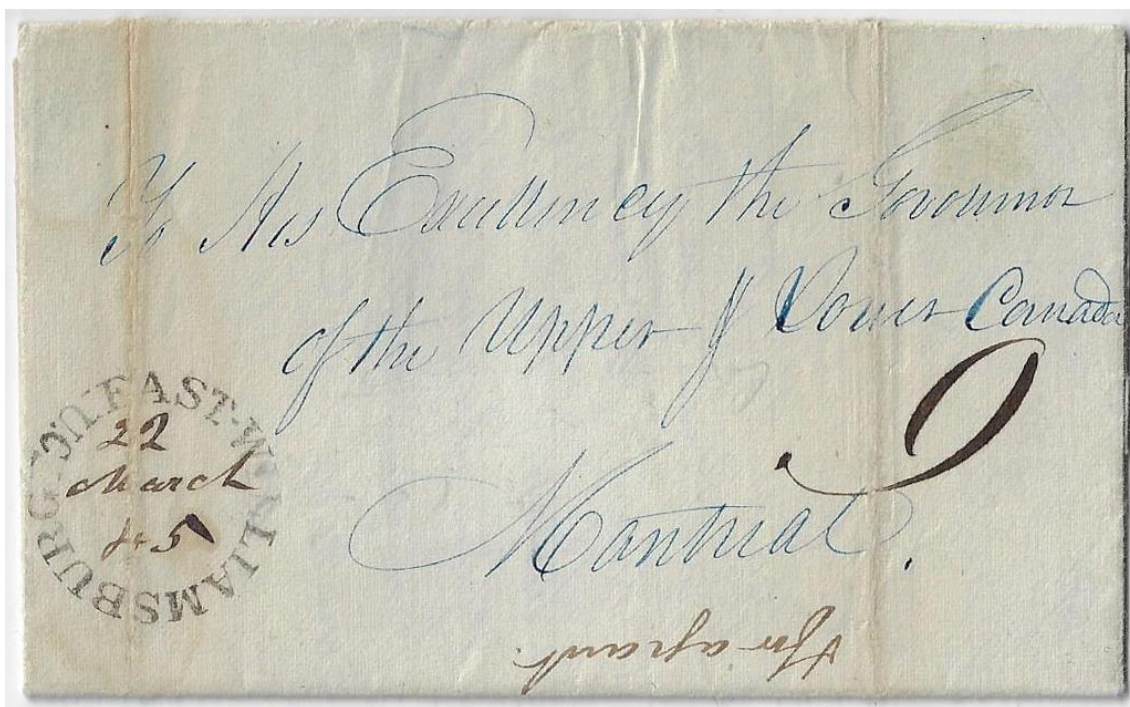 To His Excellency the Governor
of the Upper & Lower Canada
9
Montreal.
EAST-WILLIAMSBURG
22
March
45
for a grant.